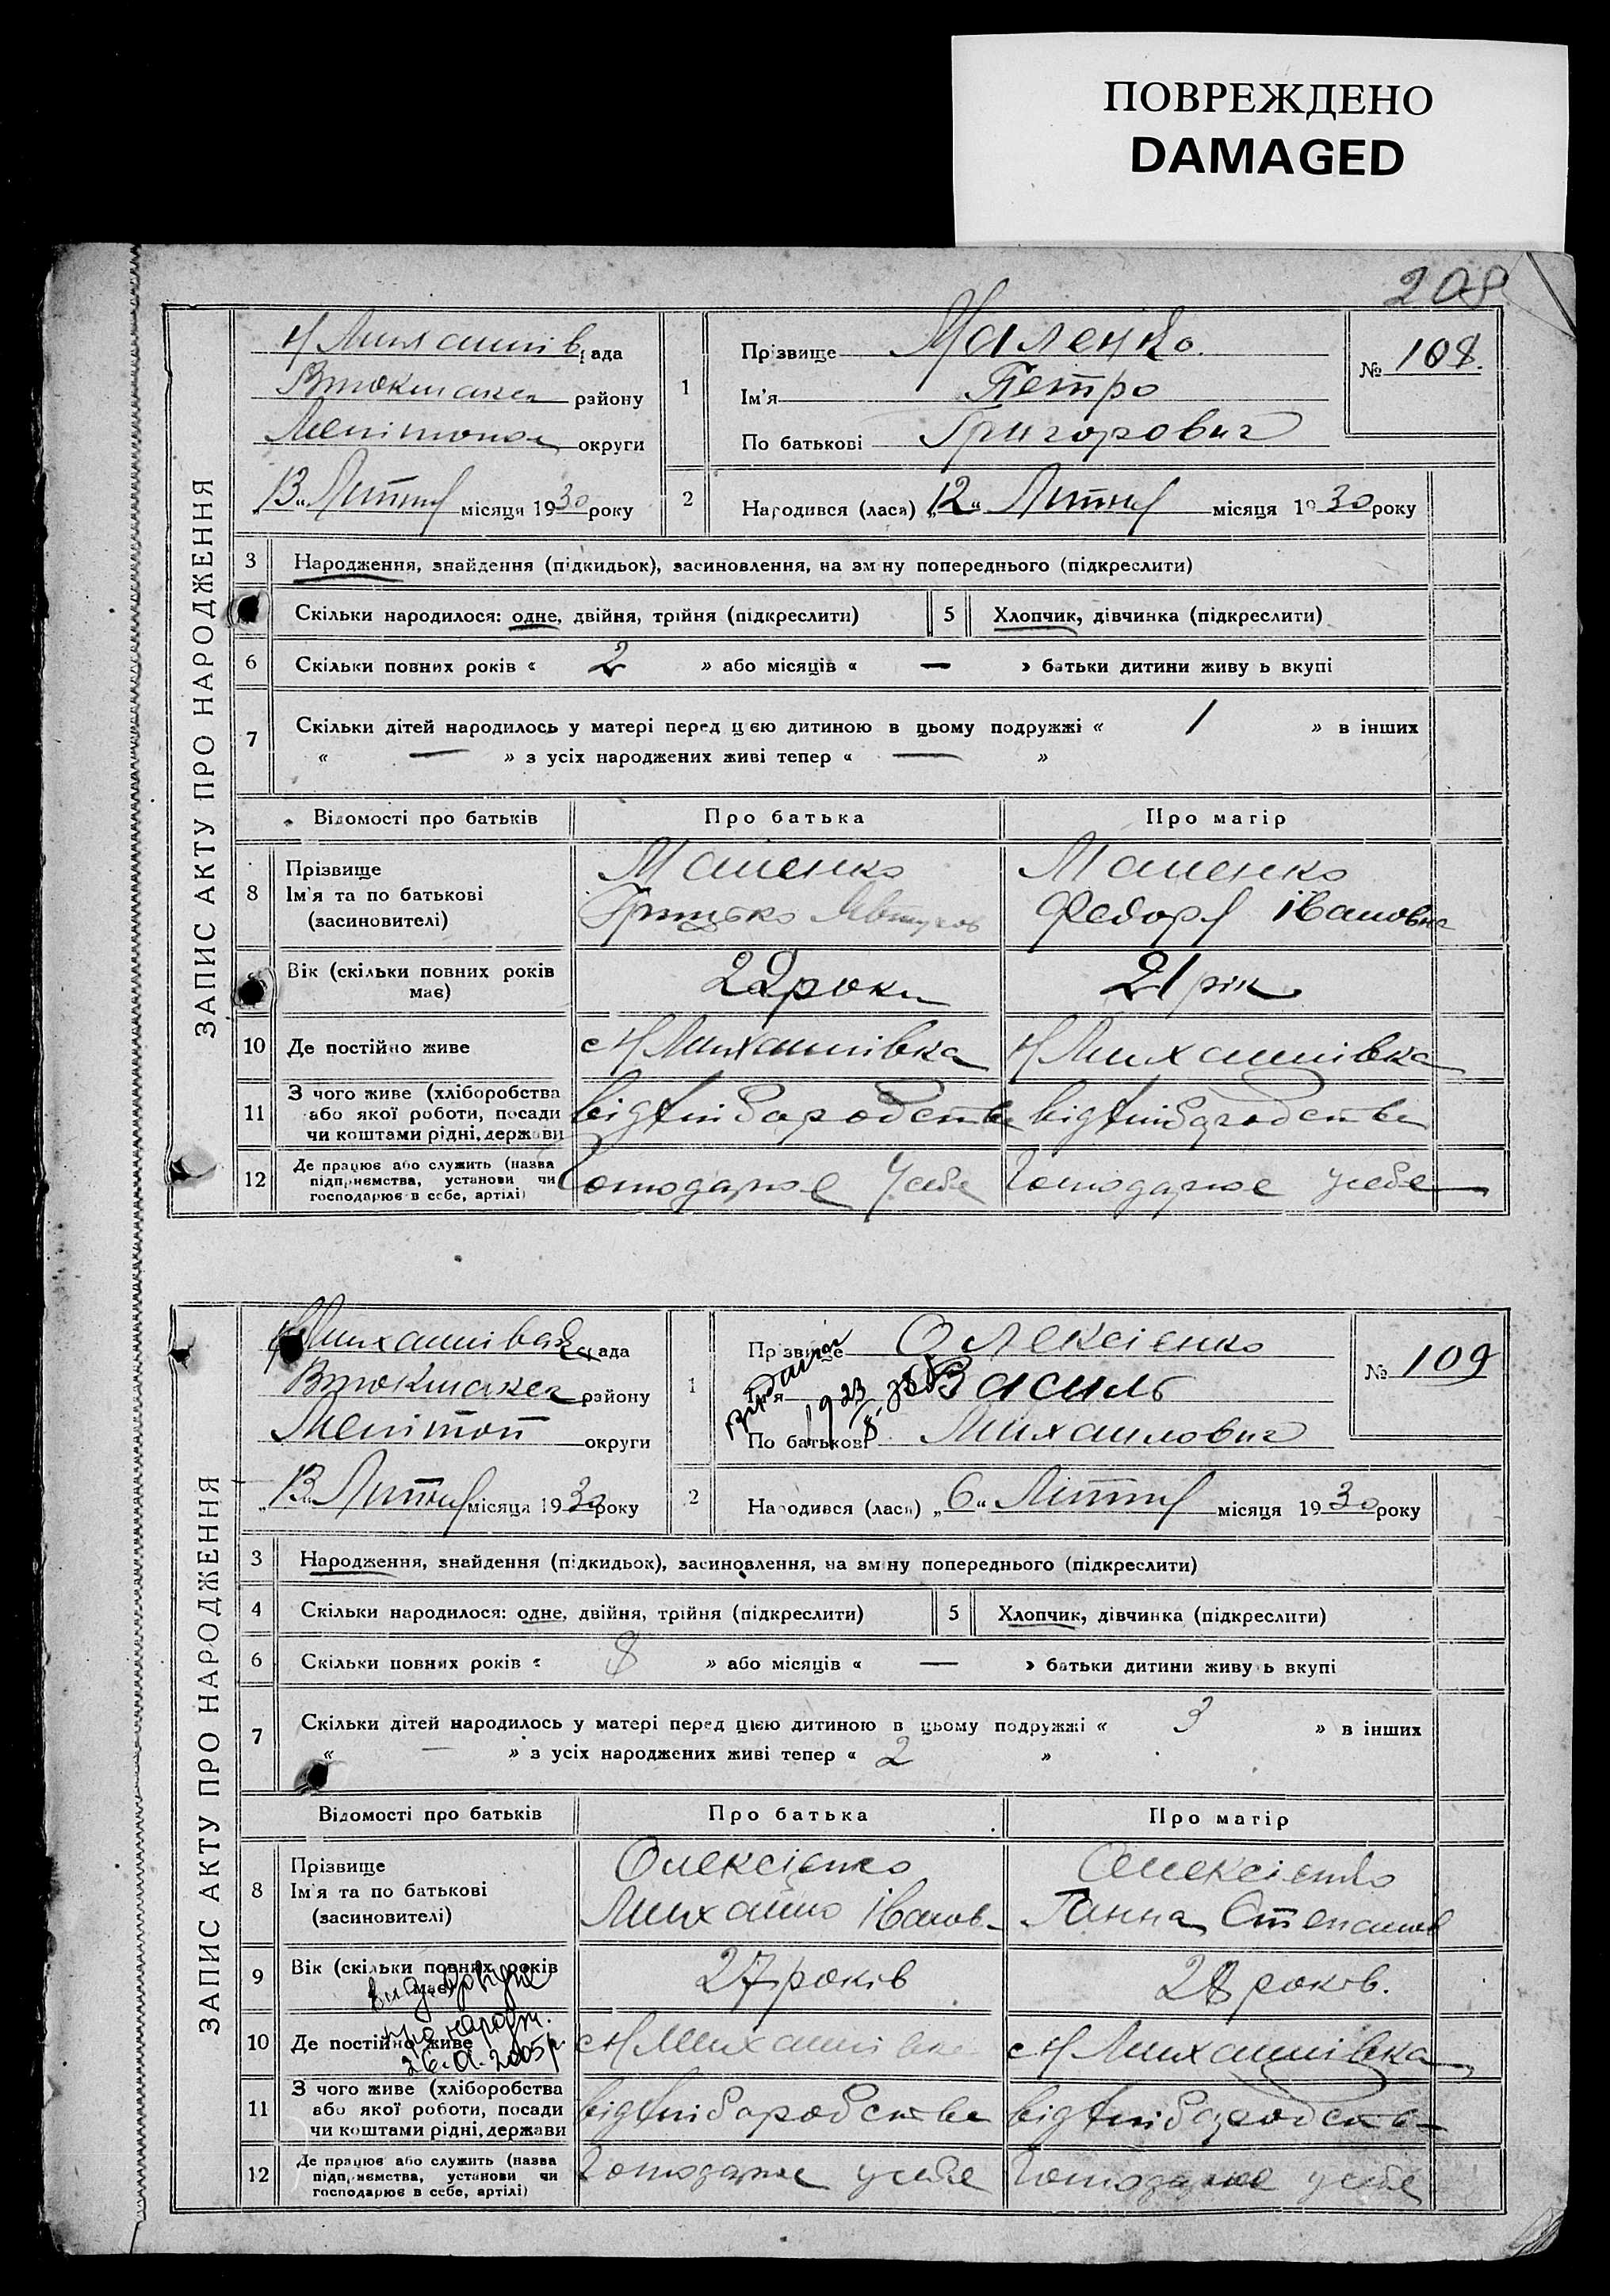 ПОВРЕЖДЕНО
DAMAGED
208
ЗАПИС АКТУ ПРО НАРОДЖЕННЯ
Н Михайлів рада
Втокмакск району
Меліпол округи
„13“ Лютня місяця 1930 року
1
Прізвище Маленко
Ім'я Петро
По батькові Григорович
№ 108.
2
Народився (лася) „12“ Лютня місяця 1930 року
3 Народження, знайдення (підкидьок), засиновлення, на зміну попереднього (підкреслити)
Скільки народилося: одне, двійня, трійня (підкреслити) 5 Хлопчик, дівчинка (підкреслити)
6 Скільки повних років « 2 » або місяців « — » батьки дитини живуть вкупі
7 Скільки дітей народилось у матері перед цією дитиною в цьому подружжі « 1 » в інших
« — » з усіх народжених живі тепер « — »
Відомості про батьків Про батька Про матір
8 Прізвище
Ім'я та по батькові
(засиновителі)
Маленко
Грицько
Маленко
Федора Івановна
Вік (скільки повних років
має)
22 роки 21 рік
10 Де постійно живе с Н Михайлівка Н Михайлівка
11 З чого живе (хліборобства
або якої роботи, посади
чи коштами рідні, держави
від хліборобства від хліборобства
12 Де працює або служить (назва
підприємства, установи чи
господарює в себе, артілі)
Господарює у себе Господарює у себе
ЗАПИС АКТУ ПРО НАРОДЖЕННЯ
Н Михайлівська рада
Втокмакск району
Мелітоп округи
„13“ Лютня місяця 1930 року
1
Прізвище Олексієнко
Ім'я Василь
По батькові Михайлович
№ 109
2
Народився (лася) „6“ Лютня місяця 1930 року
3 Народження, знайдення (підкидьок), засиновлення, на зміну попереднього (підкреслити)
4 Скільки народилося: одне, двійня, трійня (підкреслити) 5 Хлопчик, дівчинка (підкреслити)
6 Скільки повних років « 8 » або місяців « — » батьки дитини живуть вкупі
7 Скільки дітей народилось у матері перед цією дитиною в цьому подружжі « 3 » в інших
« — » з усіх народжених живі тепер « 2 »
Відомості про батьків Про батька Про матір
8 Прізвище
Ім'я та по батькові
(засиновителі)
Олексієнко
Михайло Іванов
Олексієнко
Ганна Степанов
9 Вік (скільки повних років
має)
27 років 28 років.
про народж.
26.01.2005р
10 Де постійно живе с Н Михайлівка с Н Михайлівка
11 З чого живе (хліборобства
або якої роботи, посади
чи коштами рідні, держави
від хліборобства від хліборобств
12 Де працює або служить (назва
підприємства, установи чи
господарює в себе, артілі)
Господарює у себе Господарює у себе